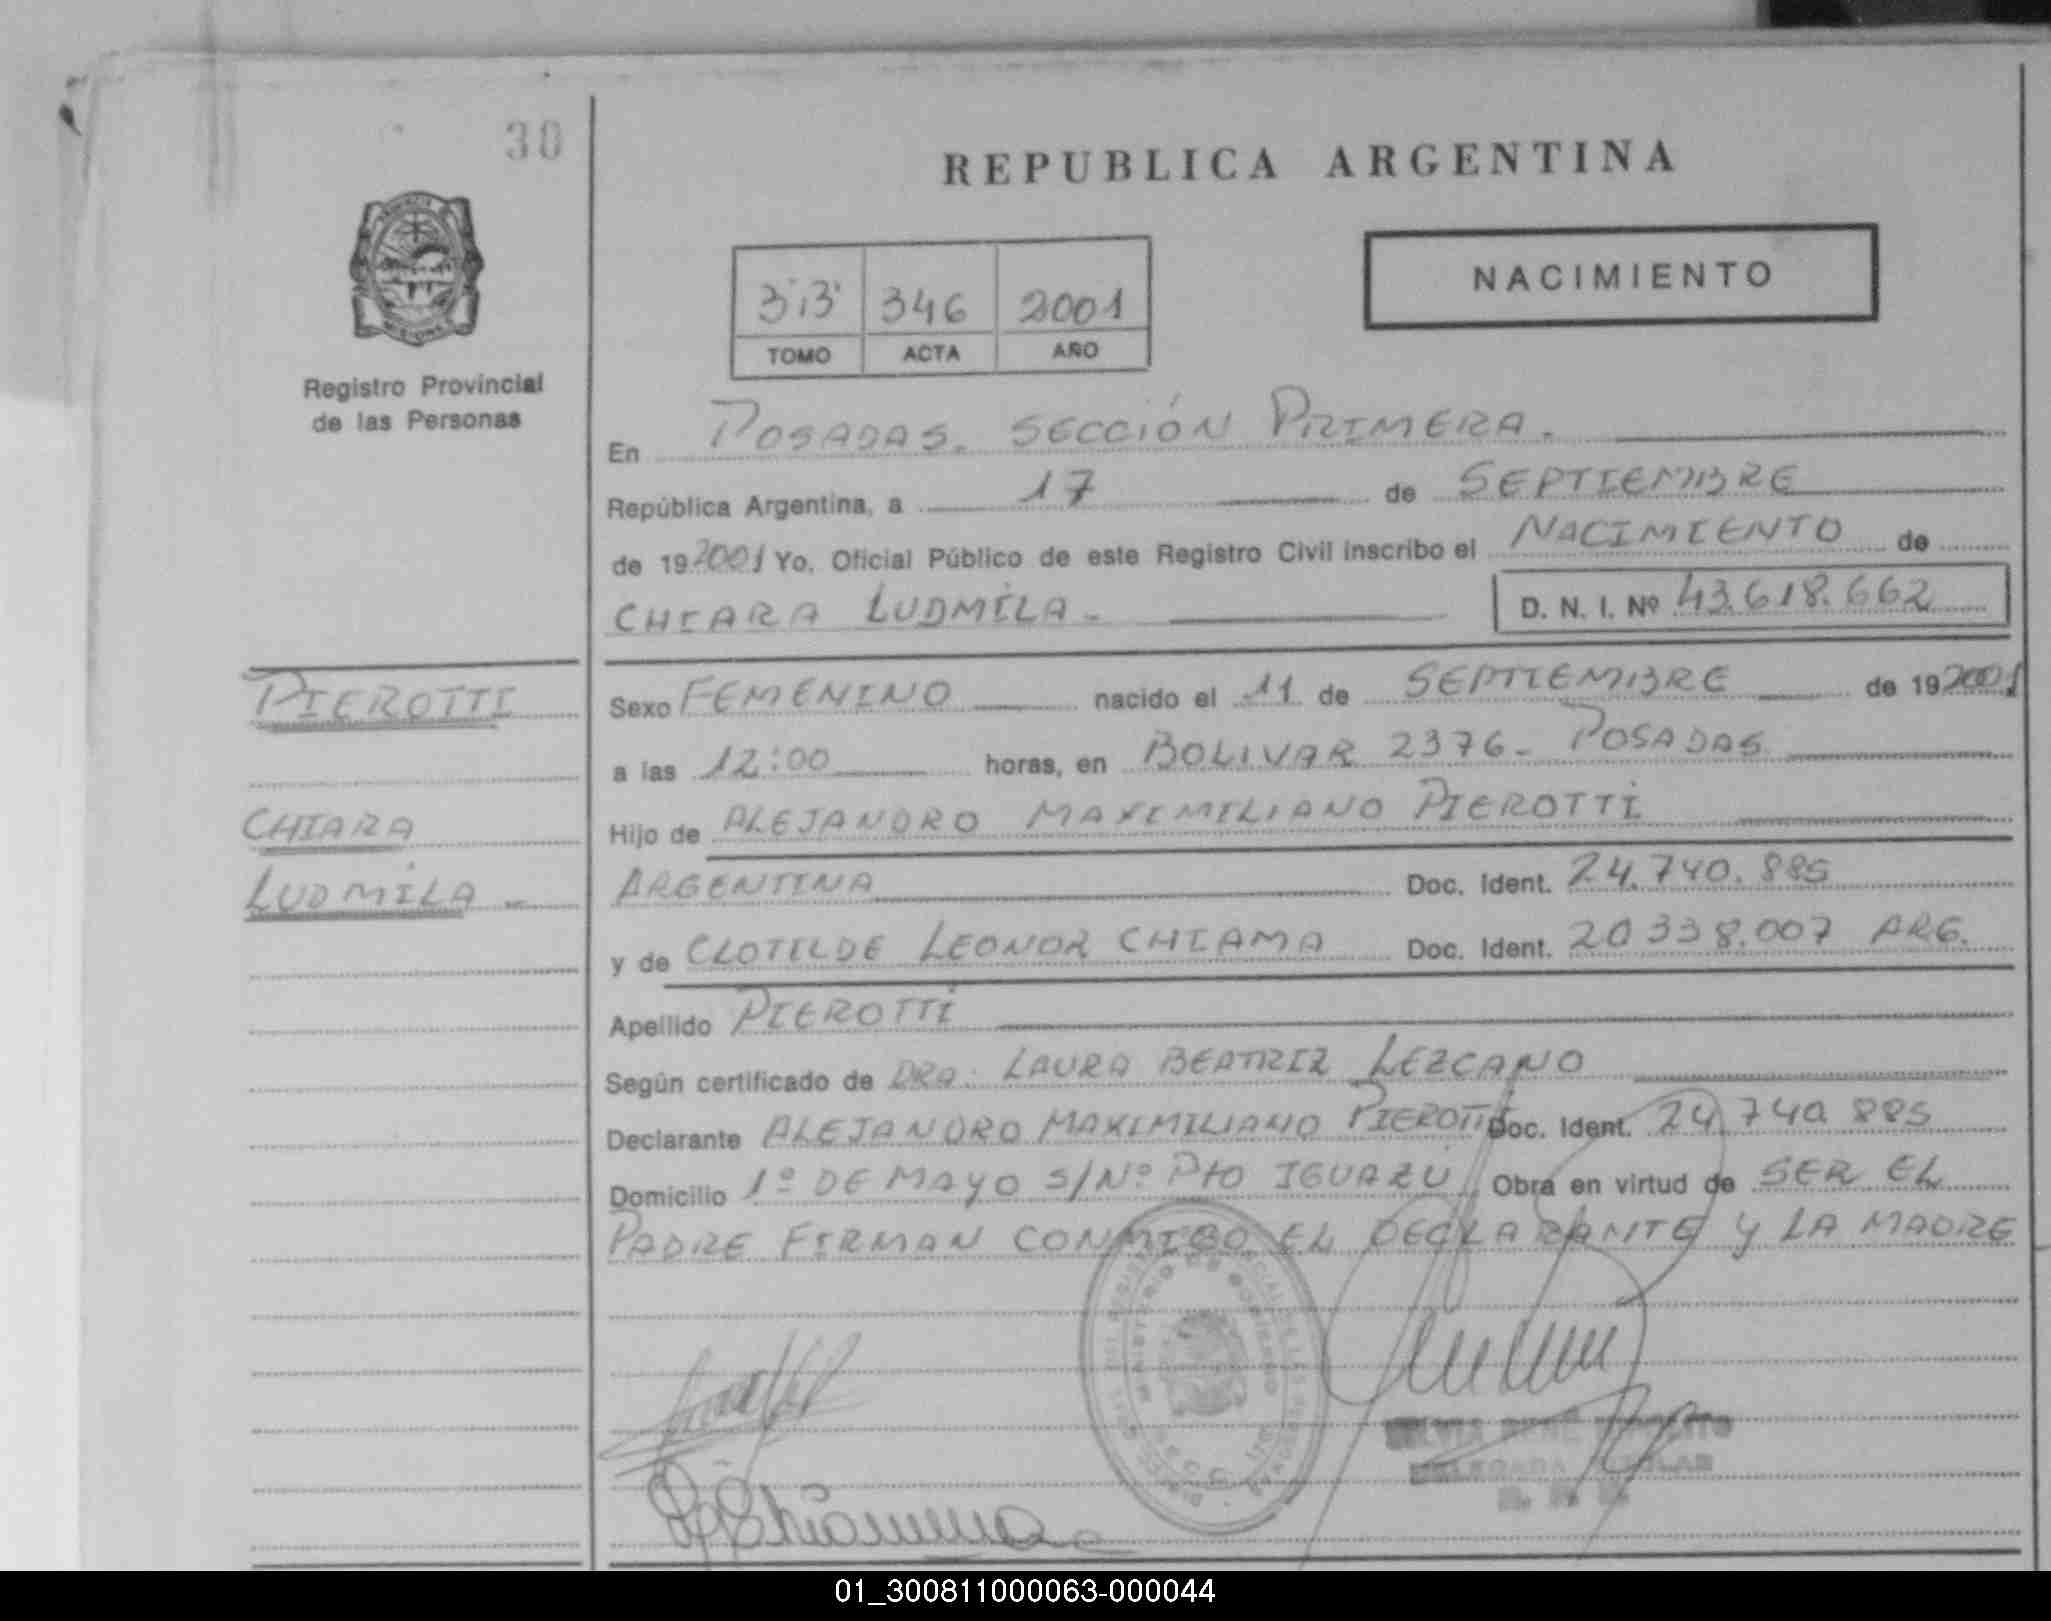 30
REPUBLICA ARGENTINA
NACIMIENTO
346 2001
TOMO ACTA AÑO
Registro Provincial
de las Personas
En POSADAS. SECCIÓN PRIMERA.
República Argentina, a 17 de SEPTIEMBRE
de 192001 Yo, Oficial Público de este Registro Civil inscribo el NACIMIENTO de
CHIARA LUDMILA. D. N. I. Nº 43.618.662
PIEROTTI
CHIARA
LUDMILA
Sexo FEMENINO nacido el 11 de SEPTIEMBRE de 192001
a las 12:00 horas, en BOLIVAR 2376. POSADAS
Hijo de ALEJANDRO MAXIMILIANO PIEROTTI
ARGENTINA Doc. Ident. 24.740.885
y de CLOTILDE LEONOR CHIAMA Doc. Ident. 20338.007 ARG.
Apellido PIEROTTI
Según certificado de DRA. LAURA BEATRIZ LEZCANO
Declarante ALEJANDRO MAXIMILIANO PIEROTTI Doc. Ident. 24 740 885
Domicilio 1º DE MAYO S/Nº Pto IGUAZÚ Obra en virtud de SER EL
PADRE FIRMAN CONMIGO EL DECLARANTE Y LA MADRE
MINISTERIO DE GOBIERNO
01_300811000063-000044